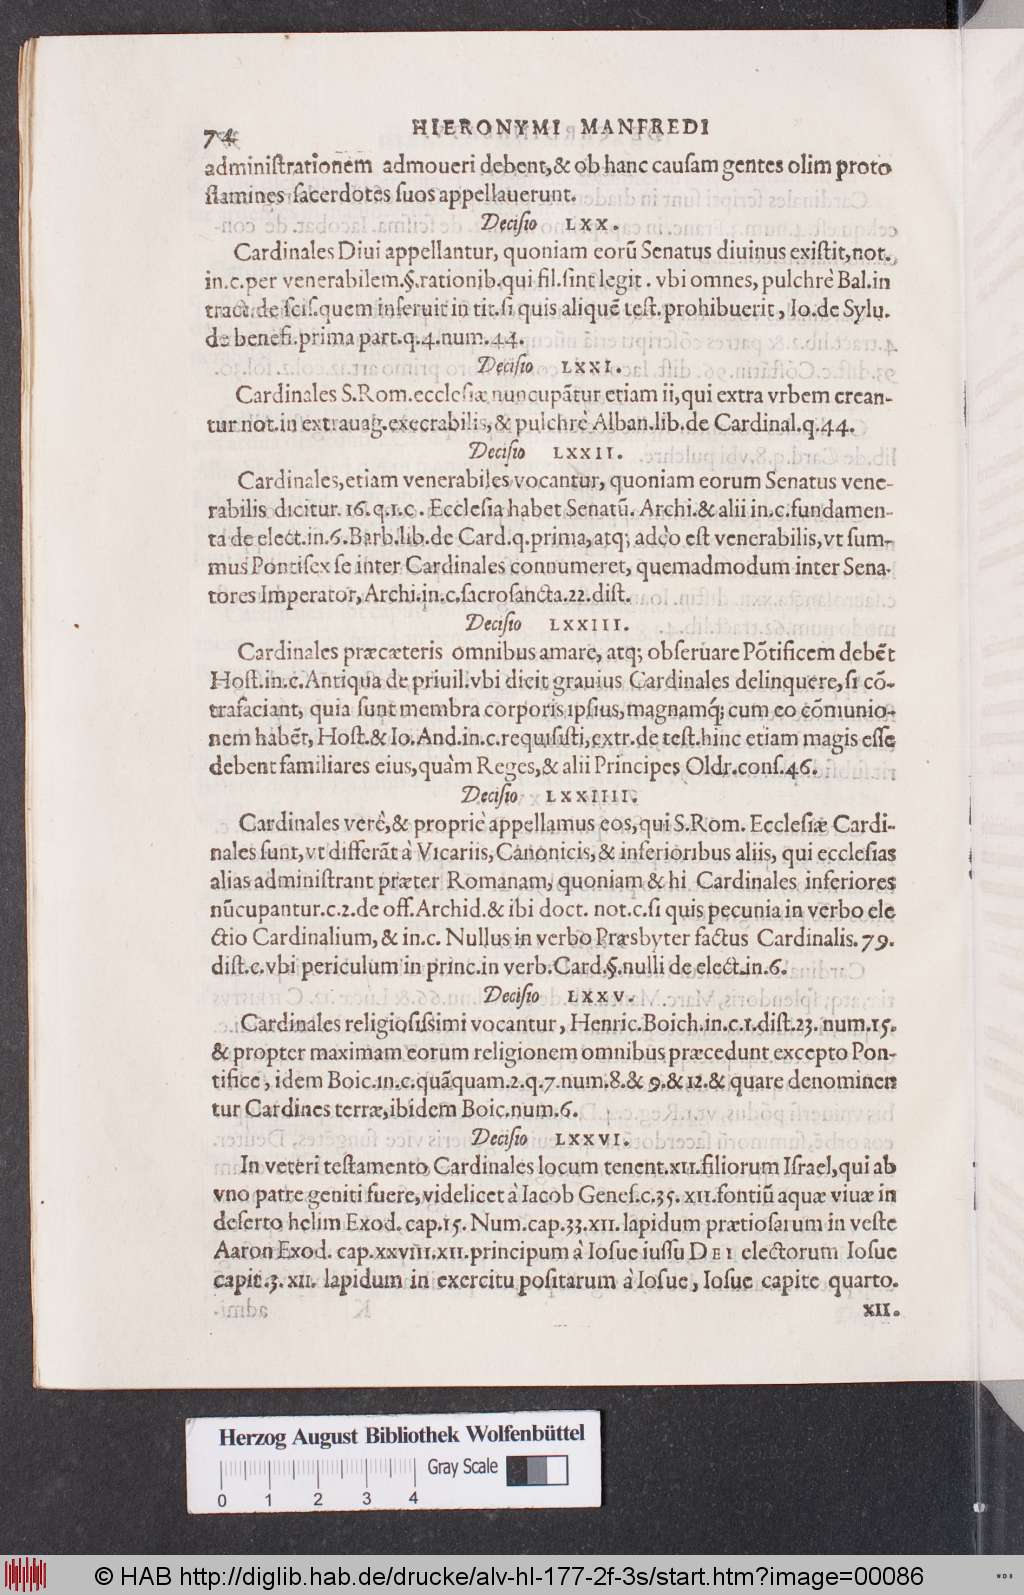 74
HIERONYMI MANFREDI
adminiſtrationem admoueri debent,& ob hanc cauſam gentes olim proto
ſtamines ſacerdotes ſuos appellauerunt.
Deciſio LXX.
Cardinales Diui appellantur, quoniam eorũ Senatus diuinus exiſtit,not.
in.c.per venerabilem.§.rationib.qui fil.ſint legit. vbi omnes, pulchrè Bal.in
tract.de ſciſ.quem inſeruit in tit.ſi quis aliquẽ teſt.prohibuerit, Io.de Sylu.
de benefi.prima part.q.4.num.44.
Deciſio LXXI.
Cardinales S.Rom.eccleſiæ nuncupãtur etiam ii,qui extra vrbem crean-
tur not.in extrauag.execrabilis,& pulchrè Alban.lib.de Cardinal.q.44.
Deciſio LXXII.
Cardinales,etiam venerabiles vocantur, quoniam eorum Senatus vene-
rabilis dicitur.16.q.1.c. Eccleſia habet Senatũ. Archi.& alii in.c.fundamen-
ta de elect.in.6.Barb.lib.de Card.q.prima,atq; adeò eſt venerabilis,vt ſum-
mus Pontifex ſe inter Cardinales connumeret, quemadmodum inter Sena-
tores Imperator, Archi.in.c.ſacroſancta.22.diſt.
Deciſio LXXIII.
Cardinales præcæteris omnibus amare, atq; obſeruare Põtificem debẽt
Hoſt.in.c.Antiqua de priuil.vbi dicit grauius Cardinales delinquere,ſi cõ-
trafaciant, quia ſunt membra corporis ipſius,magnamq; cum eo cõmunio-
nem habẽt, Hoſt.& Io.And.in.c.requiſiſti,extr.de teſt.hinc etiam magis eſſe
debent familiares eius,quàm Reges,& alii Principes Oldr.conſ.46.
Deciſio LXXIIII.
Cardinales verè,& propriè appellamus eos,qui S.Rom. Eccleſiæ Cardi-
nales ſunt,vt differãt à Vicariis,Canonicis,& inferioribus aliis, qui eccleſias
alias adminiſtrant præter Romanam, quoniam & hi Cardinales inferiores
nũcupantur.c.2.de off.Archid.& ibi doct. not.c.ſi quis pecunia in verbo ele
ctio Cardinalium, & in.c. Nullus in verbo Præsbyter factus Cardinalis.79.
diſt.c.vbi periculum in princ.in verb.Card.§.nulli de elect.in.6.
Deciſio LXXV.
Cardinales religioſiſsimi vocantur, Henric.Boich.in.c.1.diſt.23. num.15.
& propter maximam eorum religionem omnibus præcedunt excepto Pon-
tifice, idem Boic.in.c.quãquam.2.q.7.num.8.& 9.& 12.& quare denominen
tur Cardines terræ,ibidem Boic.num.6.
Deciſio LXXVI.
In veteri teſtamento Cardinales locum tenent.XII.filiorum Iſrael,qui ab
vno patre geniti fuere,videlicet à Iacob Geneſ.c.35. XII.fontiũ aquæ viuæ in
deſerto helim Exod. cap.15. Num.cap.33.XII.lapidum prætioſarum in veſte
Aaron Exod. cap.XXVIII.XII.principum à Ioſue iuſſu DEI electorum Ioſue
capit.3.XII. lapidum in exercitu poſitarum à Ioſue, Ioſue capite quarto.
XII.
Herzog August Bibliothek Wolfenbüttel
Gray Scale
0 1 2 3 4
© HAB http://diglib.hab.de/drucke/alv-hl-177-2f-3s/start.htm?image=00086